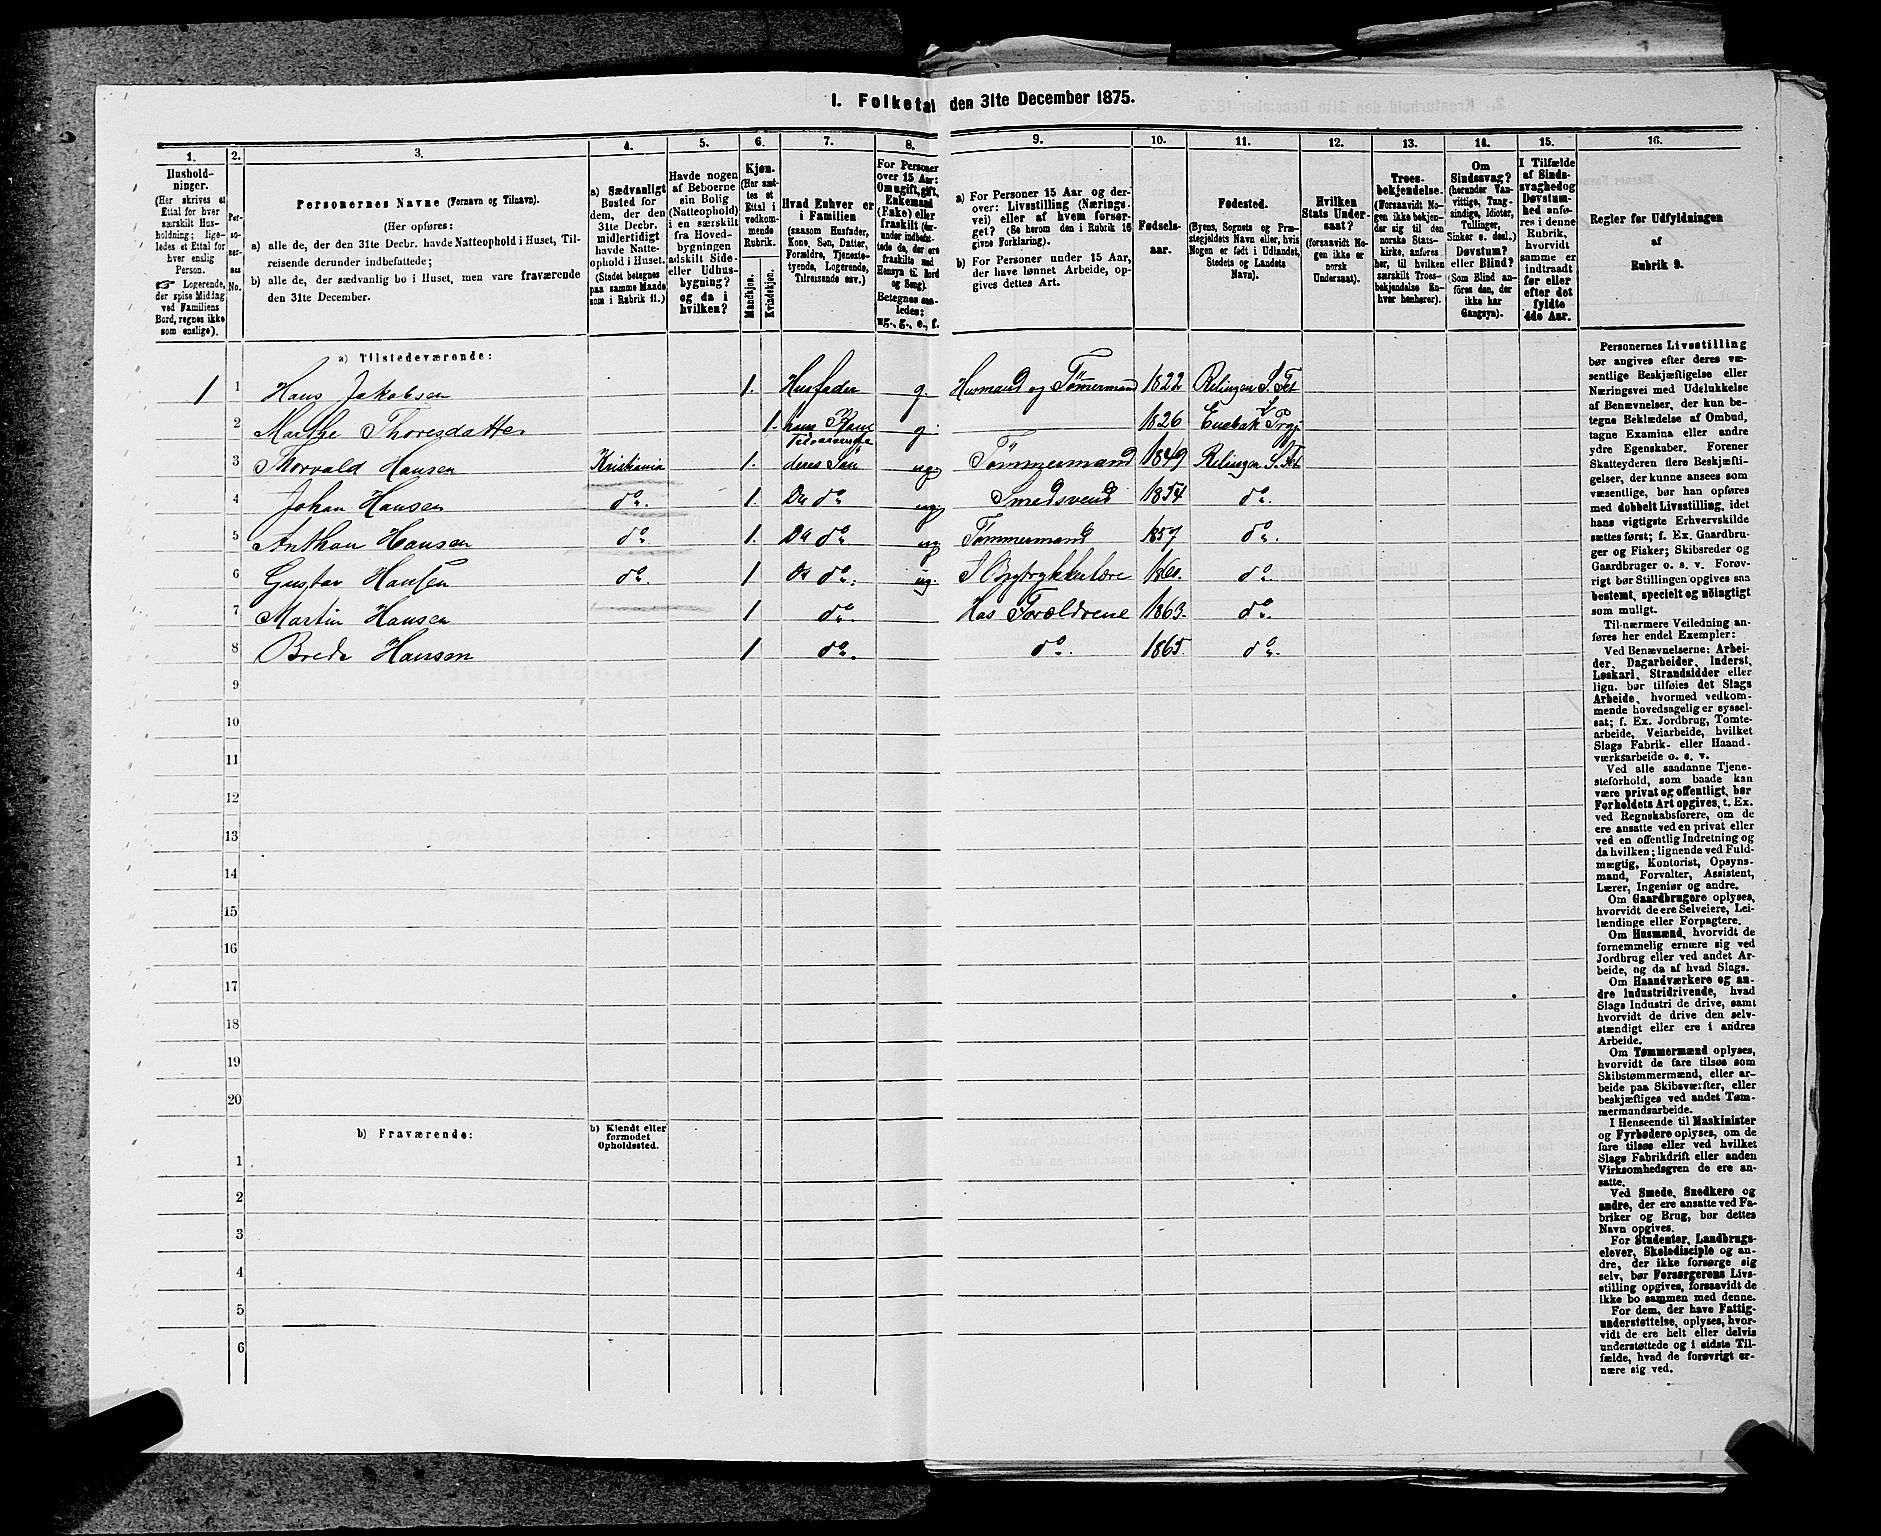 I. Folketal den 31te December 1875.
1. 2. 3. 4. 5. 6. 7. 8. 9. 10. 11. 12. 13. 14. 15. 16.
Husholdninger.
(Her skrives et Ettal for hver særskilt Husholdning; ligeledes et Ettal for hver enslig Person.
Logerende, der spise Middag ved Familiens Bord, regnes ikke som enslige).
Personernes No.
Personernes Navne (Fornavn og Tilnavn).
(Her opføres:
a) alle de, der den 31te Decbr. havde Natteophold i Huset, Tilreisende derunder indbefattede;
b) alle de, der sædvanlig bo i Huset, men vare fraværende den 31te December.
a) Sædvanligt Bosted for dem, der den 31te Decbr. midlertidigt havde Natteophold i Huset.
(Stedet betegnes paa samme Maade som i Rubrik 11.)
Havde nogen af Beboerne sin Bolig (Natteophold) i en særskilt fra Hovedbygningen adskilt Side- eller Udhusbygning? og da i hvilken?
Kjøn.
(Her sættes et Ettal i vedkommende Rubrik.
Mandkjøn.
Kvindekjøn.
Hvad Enhver er i Familien
(saasom Husfader, Kone, Søn, Datter, Forældre, Tjenestetyende, Logerende, Tilreisende osv.)
For Personer over 15 Aar: Om ugift, gift, Enkemand (Enke) eller fraskilt (herunder indbefattede de, der ere fraskilte med Hensyn til Bord og Seng).
Betegnes saaledes: ug., g., e., f.
a) For Personer 15 Aar og derover: Livsstilling (Næringsvei) eller af hvem forsørget? (Se herom den i Rubrik 16 givne Forklaring).
b) For Personer under 15 Aar, der have lønnet Arbeide, opgives dettes Art.
Fødselsaar.
Fødested.
(Byens, Sognets og Præstegjeldets Navn eller, hvis Nogen er født i Udlandet, Stedets og Landets Navn).
Hvilken Stats Undersaat?
(forsaavidt Nogen ikke er norsk Undersaat).
Troesbekjendelse.
(Forsaavidt Nogen ikke bekjender sig til den norske Statskirke, anføres her, til hvilken særskilt Troesbekjendelse Enhver henhører).
Om Sindssvag? (herunder Vanvittige, Tungsindige, Idioter, Tullinger, Sinker o. desl.) Døvstum? eller Blind?
(Som Blind anføres den, der ikke har Gangsyn).
I Tilfælde af Sindssvaghed og Døvstumhed anføres i denne Rubrik, hvorvidt samme er indtraadt før eller efter det fyldte 4de Aar.
Regler for Udfyldningen
af
Rubrik 9.
a) Tilstedeværende:
1 1 Hans Jakobsen 1. Husfader g. Husmand og Tømmermand 1822 Relingen S. Fet
2 Marthe Thoresdatter 1. hans Kone g. 1826 Enebak Prgj
3 Thorvald Hansen Kristiania 1. Tilværende deres Søn ug Tømmermand 1849 Relingen S. Fet
4 Johan Hansen do. 1. Do do. ug Smedsvend 1854 do.
5 Anthon Hansen do 1. Do do. ug Tømmermand 1857 do.
6 Gustav Hansen do. 1 Do do. ug. I Bygtrykkerlære 1860. do.
7 Martin Hansen 1 do. Hos Forældrene 1863. do.
8 Brede Hansen 1 do. do. 1865. do.
9
10
11
12
13
14
15
16
17
18
19
20
b) Fraværende:
b) Kjendt eller formodet Opholdssted.
1
2
3
4
5
6
Personernes Livsstilling
bør angives efter deres væ-
sentlige Beskjæftigelse eller
Næringsvei med Udelukkelse
af Benævnelser, der kun be-
tegne Beklædelse af Ombud,
tagne Examina eller andre
ydre Egenskaber. Forener
Skatteyderen flere Beskjæfti-
gelser, der kunne ansees som
væsentlige, bør han opføres
med dobbelt Livsstilling, idet
hans vigtigste Erhvervskilde
sættes først; f. Ex. Gaardbru-
ger og Fisker; Skibsreder og
Gaardbruger o. s. v. Forøv-
rigt bør Stillingen opgives saa
bestemt, specielt og nøiagtigt
som muligt.
Til nærmere Veiledning an-
føres her endel Exempler:
Ved Benævnelserne: Arbei-
der, Dagarbeider, Inderst,
Løskarl, Strandsidder eller
lign. bør tilføies det Slags
Arbeide, hvormed vedkom-
mende hovedsagelig er syssel-
sat; f. Ex. Jordbrug, Tomte-
arbeide, Veiarbeide, hvilket
Slags Fabrik- eller Haand-
værksarbeide o. s. v.
Ved alle saadanne Tjene-
steforhold, som baade kan
være privat og offentligt, bør
Forholdets Art opgives, t. Ex.
ved Regnskabsførere, om de
ere ansatte ved en privat eller
ved en offentlig Indretning og
da hvilken; lignende ved Fuld-
mægtig, Kontorist, Opsyns-
mand, Forvalter, Assistent,
Lærer, Ingeniør og andre.
Om Gaardbrugere oplyses,
hvorvidt de ere Selveiere, Lei-
lændinge eller Forpagtere.
Om Husmænd, hvorvidt de
fornemmelig ernære sig ved
Jordbrug eller ved andet Ar-
beide, og da af hvad Slags.
Om Haandværkere og an-
dre Industridrivende, hvad
Slags Industri de drive, samt
hvorvidt de drive den selv-
stændigt eller ere i andres
Arbeide.
Om Tømmermænd oplyses,
hvorvidt de fare tilsøs som
Skibstømmermænd, eller ar-
beide paa Skibsværfter, eller
beskjæftiges ved andet Tøm-
mermandsarbeide.
I Henseende til Maskinister
og Fyrbødere oplyses, om de
fare tilsøs eller ved hvilket
Slags Fabrikdrift eller anden
Virksomhedsgren de ere an-
satte.
Ved Smede, Snedkere og
andre, der ere ansatte ved Fa-
briker og Brug, bør dettes
Navn opgives.
For Studenter, Landbrugs-
elever, Skoledisciple og an-
dre, der ikke forsørge sig
selv, bør Forsørgerens Livs-
stilling opgives, forsaavidt de
ikke bo sammen med denne.
For dem, der have Fattig-
understøttelse, oplyses, hvor-
vidt de ere helt eller delvis
understøttede og i sidste Til-
fælde, hvad de forøvrigt er-
nære sig ved.